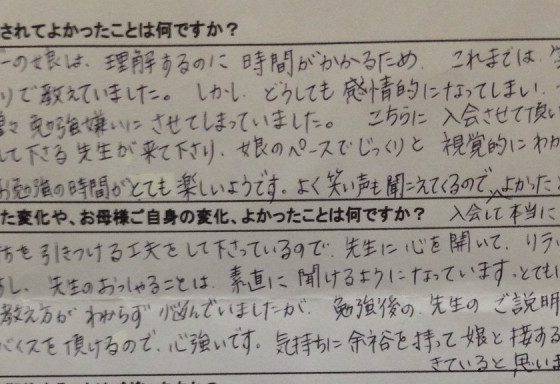 されてよかったことは何ですか？
ーの娘は、理解するのに時間がかかるため、これまでは、
りで教えていました。しかし、どうしても感情的になってしまい、
々勉強嫌いにさせてしまっていました。こちらに入会させて頂い
して下さる先生が来て下さり、娘のペースでじっくりと視覚的にわか
お勉強の時間がとても楽しいようです。よく笑い声も聞こえてくるので、よかった
た変化や、お母様ご自身の変化、よかったことは何ですか？ 入会して本当に
ちを引きつける工夫をして下さっているので、先生に心を開いて、リラ
し、先生のおっしゃることは、素直に聞けるようになっています。とても
教え方がわからず悩んでいましたが、勉強後の先生のご説明
バイスを頂けるので、心強いです。気持ちに余裕を持って娘と接する
きていると思いま